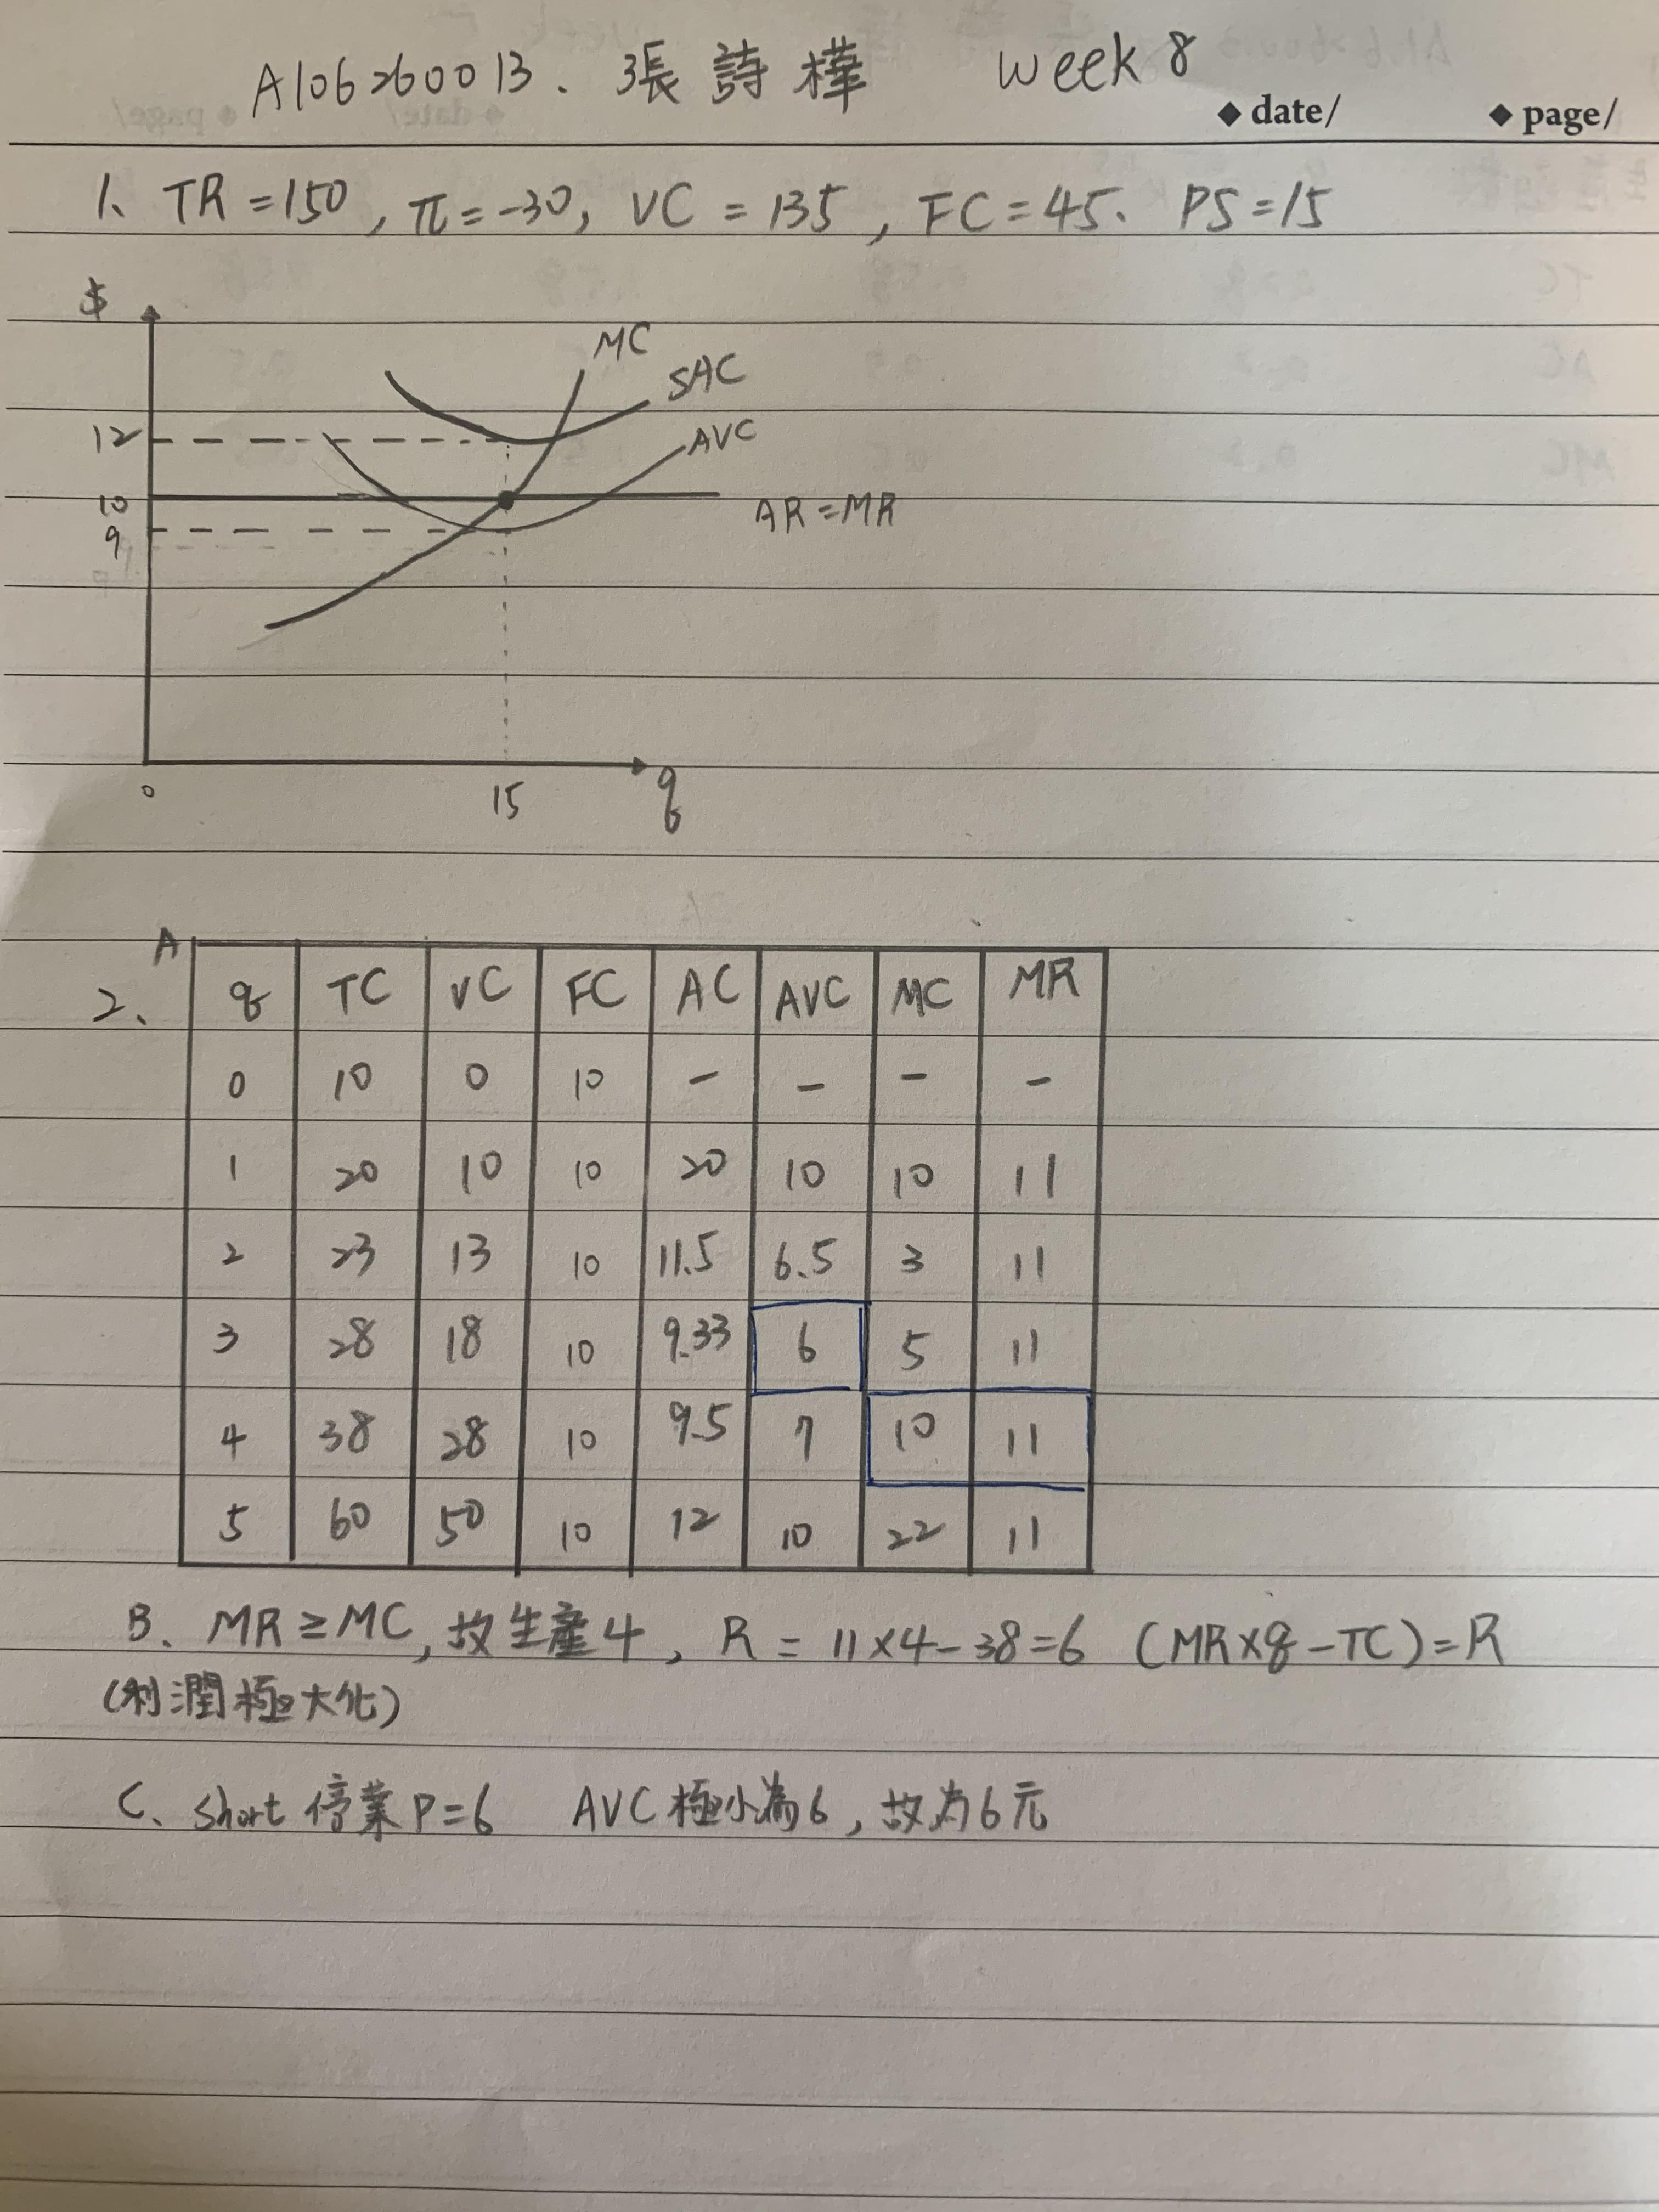 A106260013. 張詩樺 week 8
◆ date/ ◆ page/
1、TR=150, π=-30, VC=135, FC=45、PS=15
$
MC
SAC
12
AVC
10
AR=MR
9
0 15 q
A
2、 q TC VC FC AC AVC MC MR
0 10 0 10 - - - -
1 20 10 10 20 10 10 11
2 23 13 10 11.5 6.5 3 11
3 28 18 10 9.33 6 5 11
4 38 28 10 9.5 7 10 11
5 60 50 10 12 10 22 11
B、MR≥MC, 故生產4, R=11×4-38=6 (MR×q-TC)=R
(利潤極大化)
C、short 停業P=6 AVC極小為6, 故為6元